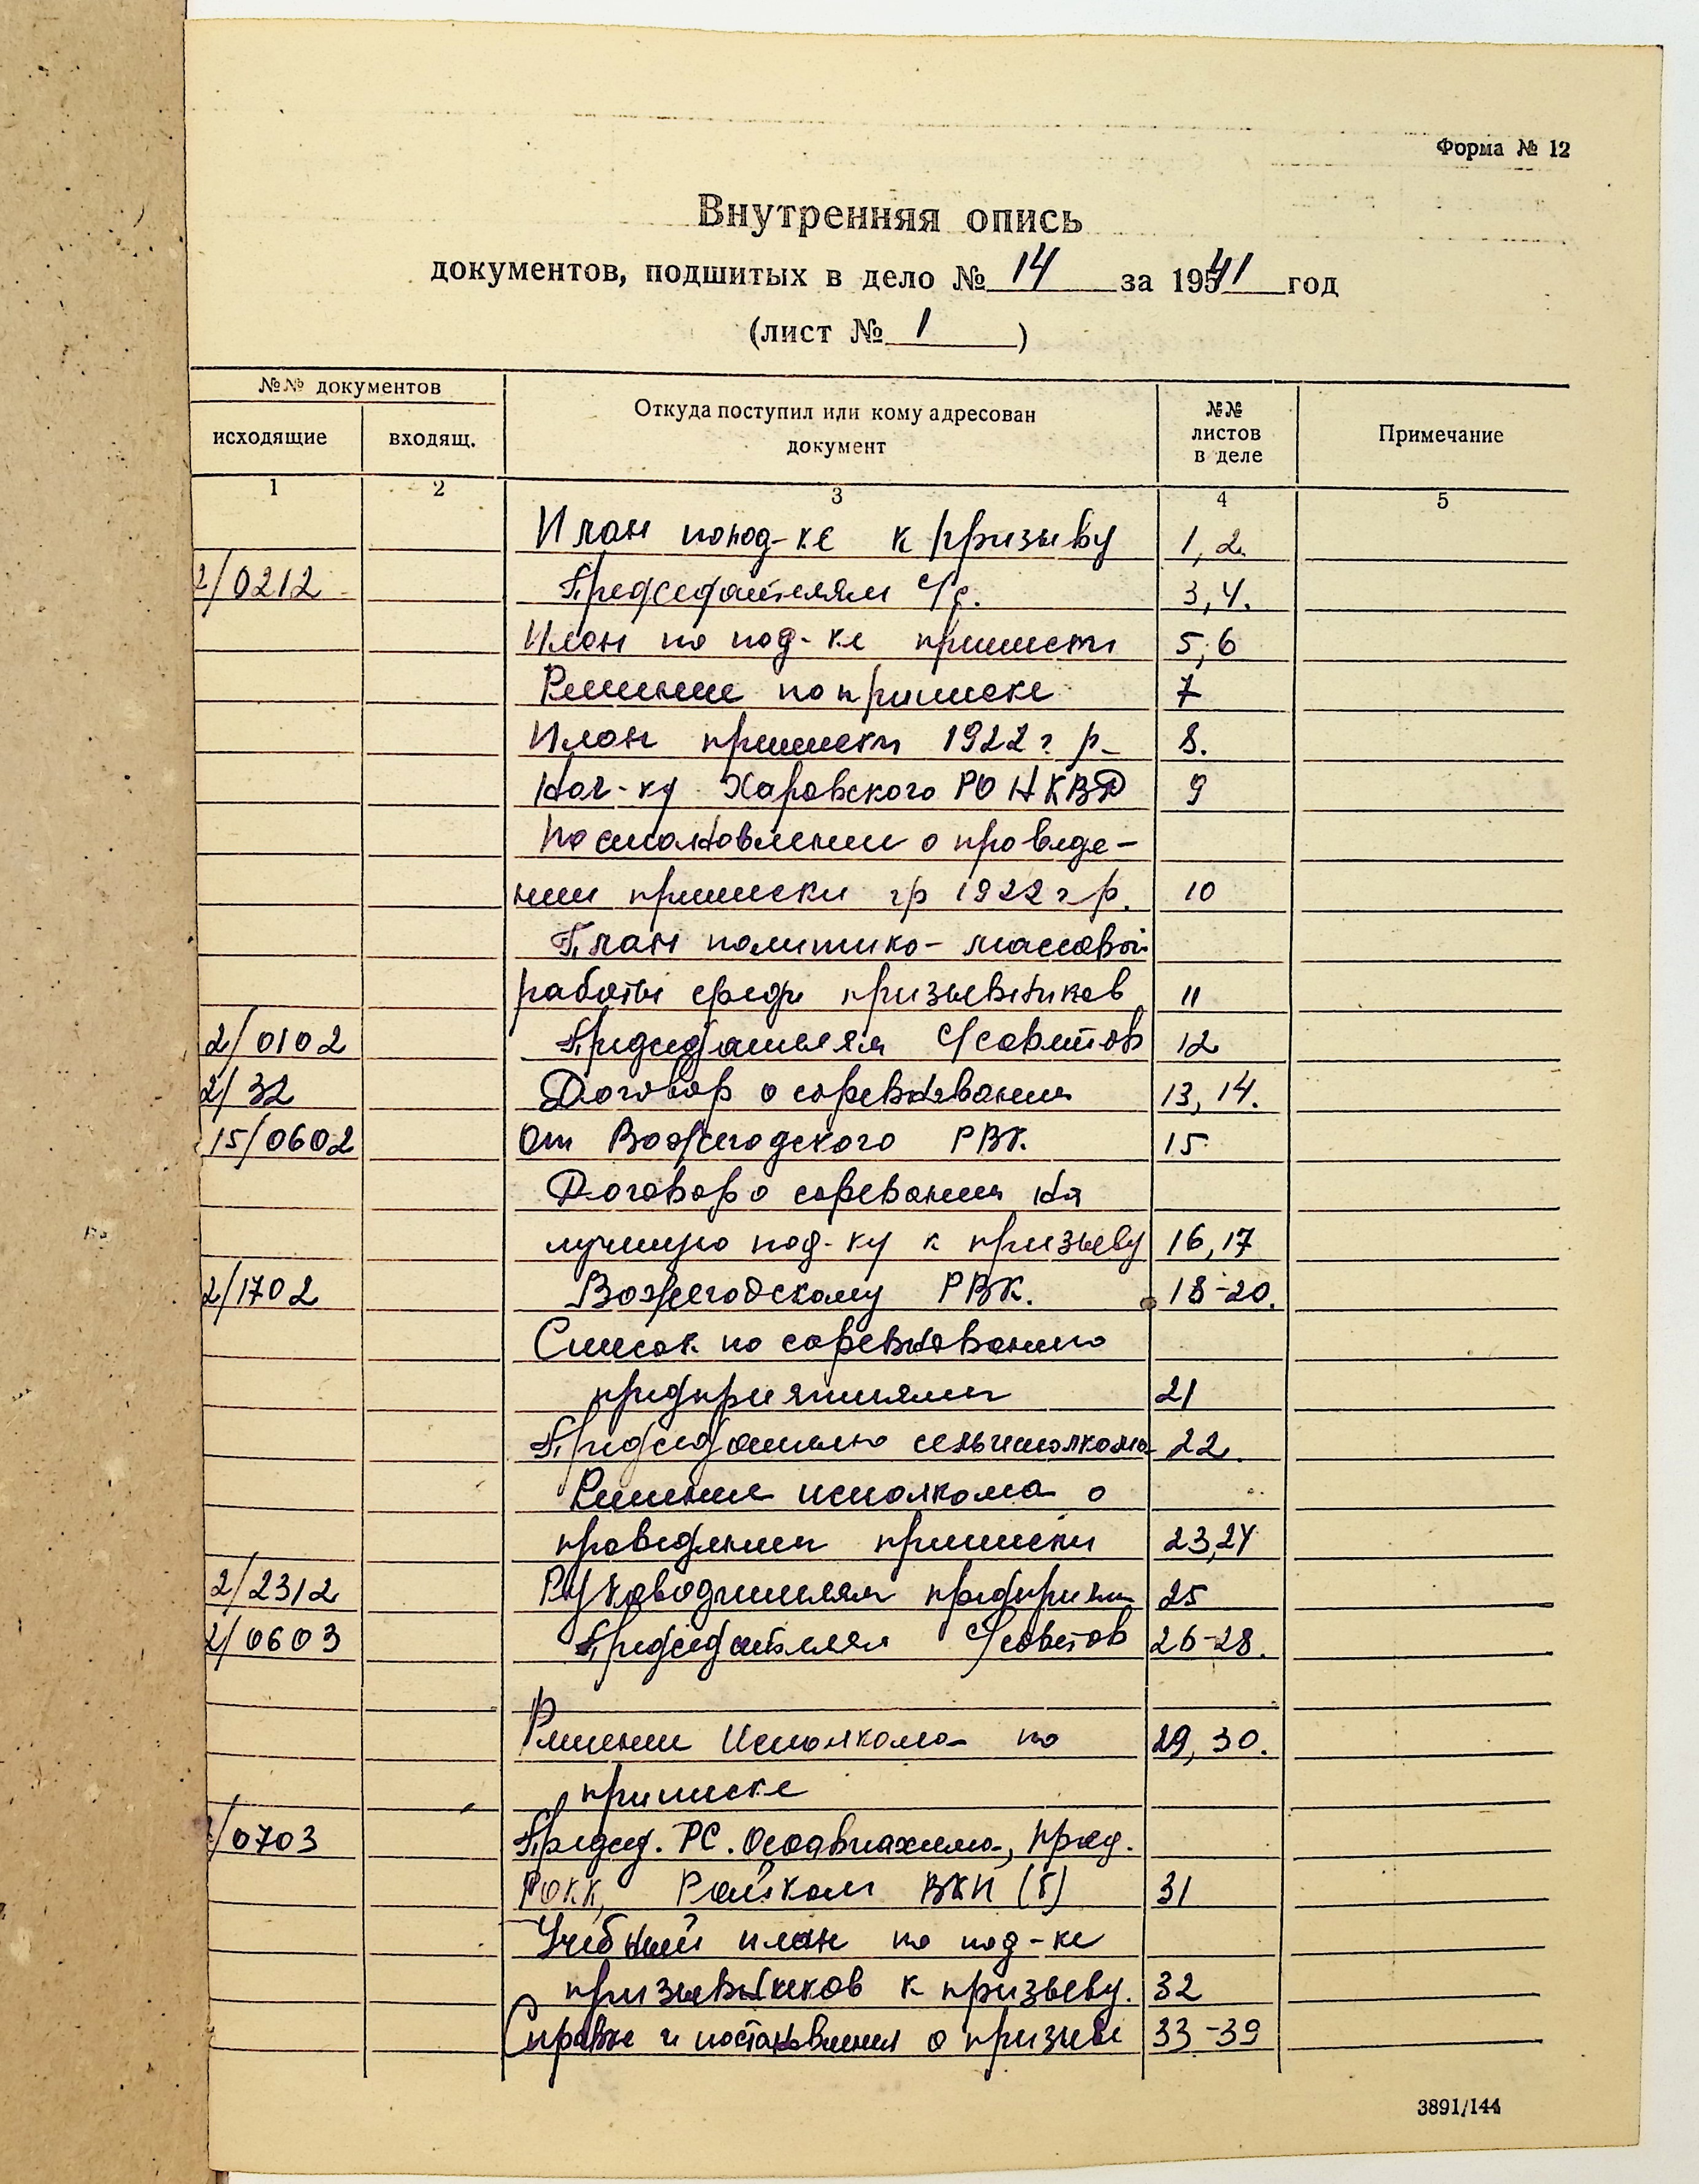 Форма № 12
Внутренняя опись
документов, подшитых в дело № 14 за 1941 год
(лист № 1)
№№ документов
Откуда поступил или кому адресован документ
№№ листов в деле
Примечание
исходящие входящ.
1 2 3 4 5
План по под-ке к призыву 1, 2.
2/0212 Председателям с/с. 3, 4.
План по под-ке приписки 5, 6
Решение по приписке 7
План приписки 1922 г. р. 8.
Нач-ку Харовского РО НКВД 9
Постановлении о проведе-
нии приписки гр 1922 г р. 10
План политико-массовой
работы среди призывников 11
2/0102 Председателям с/советов 12
2/32 Договор о соревновании 13, 14.
15/0602 От Вожегодского РВК. 15
Договор о соревании на
лучшую под-ку к призыву 16, 17
2/1702 Вожегодскому РВК. 18-20.
Список по соревнованию
предприятиями 21
Председателю сельисполкома 22.
Решение исполкома о
проведении приписки 23, 24
2/2312 Руководителям предприяти 25
2/0603 Председателям с/советов 26-28.
Решении Исполкома по 29, 30.
приписке
/0703 Председ. РС. Осоавиахима, пред.
РОКК, Райком ВКП (б) 31
Учебный план по под-ке
призывников к призыву. 32
Справке и постановления о призыве 33-39
3891/144